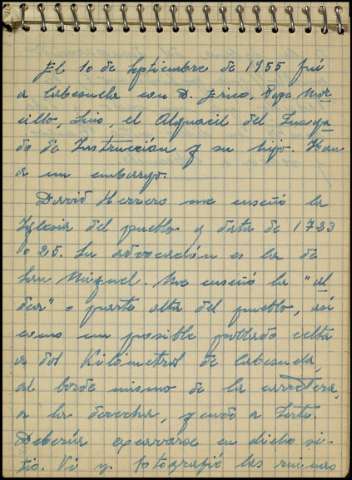 El 10 de Septiembre de 1955 fuí
a Cabezuela con D. Perico, Pepa Mor-
cillo, Luis, el Alguacil del Juzga-
do de Instrucción y su hijo. Iban
a un embargo.
David Herrero me enseñó la
Iglesia del pueblo y data de 1723
o 25. Su advocación es la de
San Miguel. Me enseñó la "al
dea" o parte alta del pueblo, así
como un posible poblado celta
a dos Kilómetros de Cabezuela,
al borde mismo de la carretera,
a la derecha, yendo a
Debería excavarse en dicho si-
tio. Vi y fotografié las ruinas